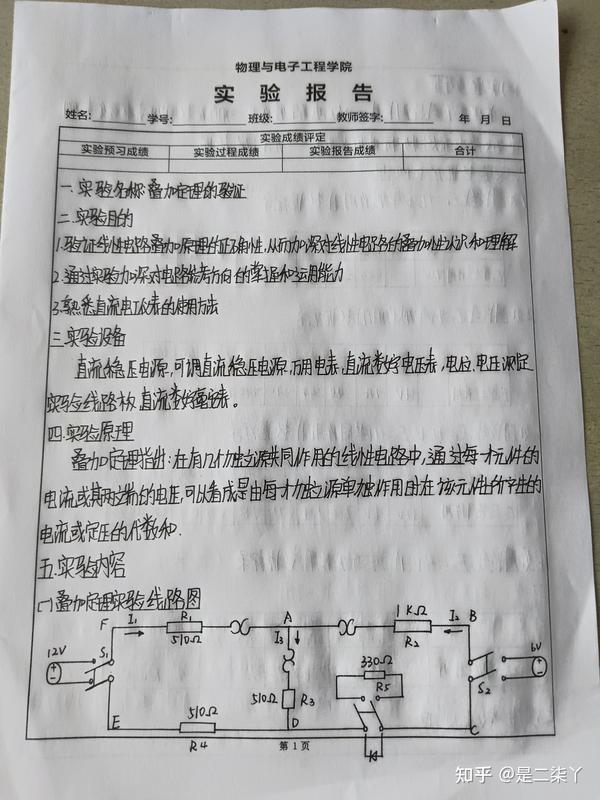 物理与电子工程学院
实 验 报 告
姓名: 学号: 班级: 教师签字: 年 月 日
实验成绩评定
实验预习成绩 实验过程成绩 实验报告成绩 合计
一.实验名称:叠加定理的验证
二.实验目的
1.验证线性电路叠加原理的正确性,从而加深对线性电路的叠加性认识和理解
2.通过实验加深对电路参考方向的掌握和运用能力
3.熟悉直流电工仪表的使用方法
三.实验设备
直流稳压电源,可调直流稳压电源,万用电表,直流数字电压表,电位、电压测定
实验线路板,直流数字毫安表。
四.实验原理
叠加定理指出:在有几个独立源共同作用的线性电路中,通过每一个元件的
电流或其两端的电压,可以看成是由每一个独立源单独作用由在该元件上所产生的
电流或定压的代数和.
五.实验内容
(一)叠加定理实验线路图
F I₁ R₁ 510Ω A 1KΩ R₂ I₂ B
12V S₁ I₃ 330Ω R5 S₂ 6V
510Ω R3
E 510Ω R4 D C
第 1 页
知乎 @是二柒丫